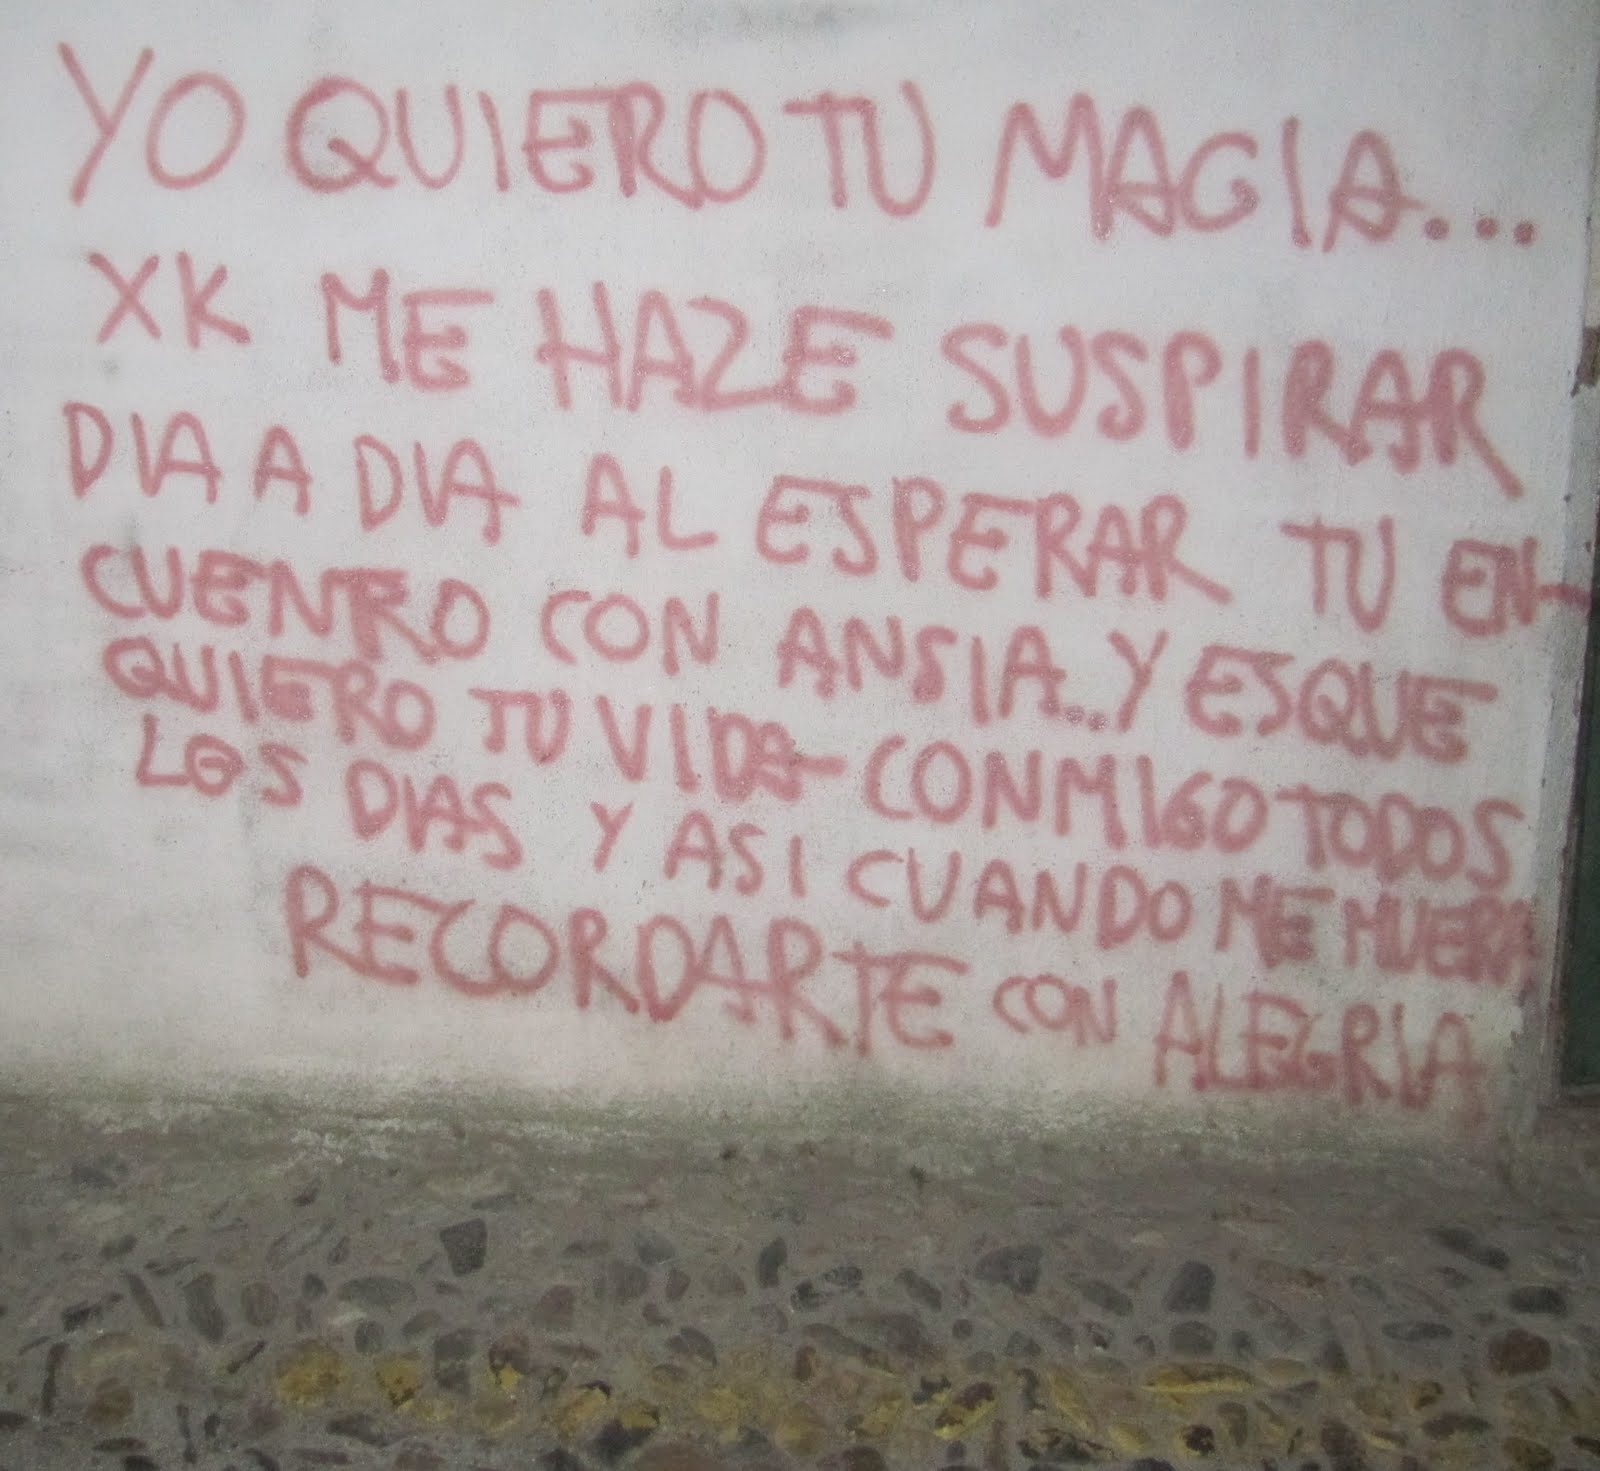 YO QUIERO TU MAGIA...
XK ME HAZE SUSPIRAR
DIA A DIA AL ESPERAR TU EN-
CUENTRO CON ANSIA..Y ESQUE
QUIERO TU VIDA CONMIGO TODOS
LOS DIAS Y ASI CUANDO ME MUERA
RECORDARTE CON ALEGRIA